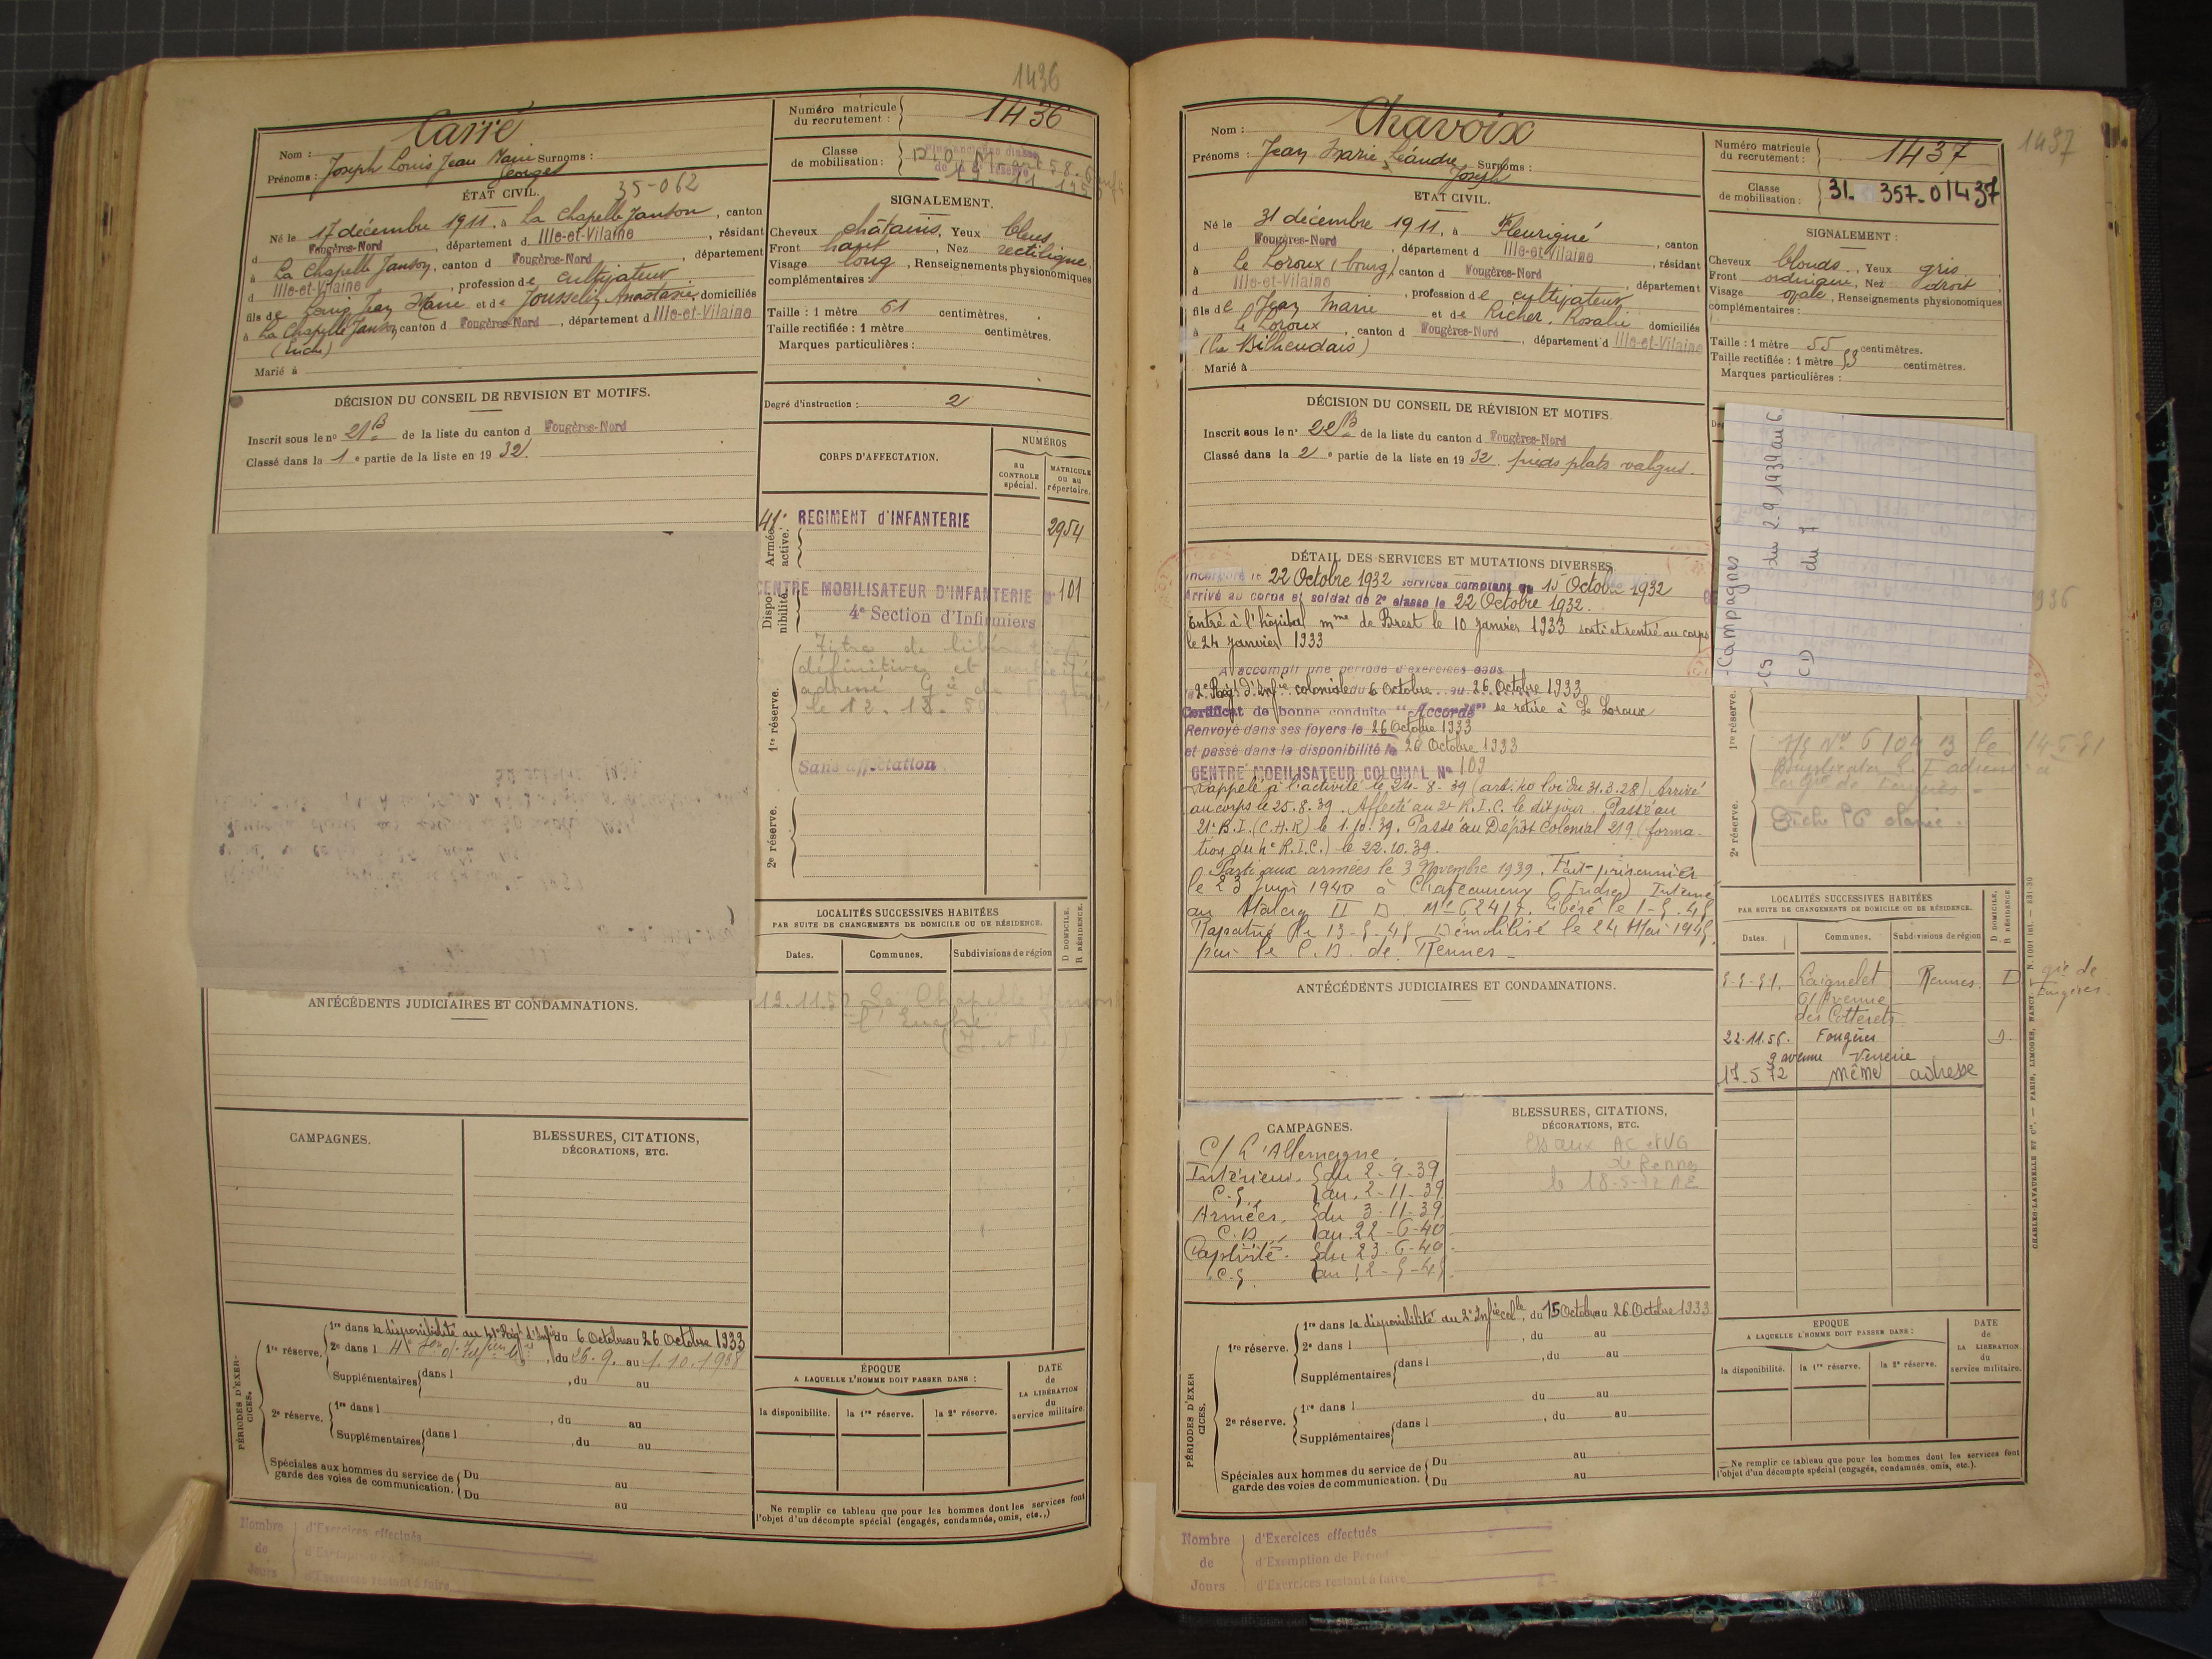 1436
Nom : Carré
Prénoms : Joseph Louis Jean Marie Surnoms :
Georges
35-062
ÉTAT CIVIL.
Né le 17 décembre 1911, à La Chapelle Janson, canton
d Fougères-Nord, département d Ille-et-Vilaine, résidant
à La Chapelle Janson, canton d Fougères-Nord, département
d Ille-et-Vilaine, profession de cultivateur
fils de Louis Jean Marie et de Jousselin Anastasie, domiciliés
à La Chapelle Janson, canton d Fougères-Nord, département d Ille-et-Vilaine
Marié à
DÉCISION DU CONSEIL DE REVISION ET MOTIFS.
Inscrit sous le nº 21 B de la liste du canton d Fougères-Nord
Classé dans la 1 e partie de la liste en 1932.
ANTÉCÉDENTS JUDICIAIRES ET CONDAMNATIONS.
CAMPAGNES.
BLESSURES, CITATIONS,
DÉCORATIONS, ETC.
PÉRIODES D'EXERCICES.
1re réserve.
1re dans la disponibilité au 41e Régt d'Infie du 6 Octobre au 26 Octobre 1933
2e dans l , du 26.9. au 1.10.1938
Supplémentaires dans l , du au
2e réserve.
1re dans l , du au
Supplémentaires dans l , du au
Spéciales aux hommes du service de garde des voies de communication.
Du au
Du au
Nombre de Jours
d'Exercices effectués
d'Exercices restant à faire
Numéro matricule du recrutement : 1436
Classe de mobilisation :
SIGNALEMENT.
Cheveux châtains, Yeux bleus
Front haut, Nez rectiligne
Visage long, Renseignements physionomiques
complémentaires :
Taille : 1 mètre 61 centimètres.
Taille rectifiée : 1 mètre centimètres.
Marques particulières :
Degré d'instruction : 2
CORPS D'AFFECTATION.
NUMÉROS
au CONTROLE spécial.
MATRICULE ou au répertoire.
Armée active.
41e REGIMENT d'INFANTERIE 2954
Disponibilité.
CENTRE MOBILISATEUR D'INFANTERIE nº 101
4e Section d'Infirmiers
1re réserve.
Titre de libération
définitive et
adressé Gie de Fougères
le 12.12.50
Sans affectation
2e réserve.
LOCALITÉS SUCCESSIVES HABITÉES
PAR SUITE DE CHANGEMENTS DE DOMICILE OU DE RÉSIDENCE.
D DOMICILE. R RÉSIDENCE.
Dates. Communes. Subdivisions de région
12.11.50 La Chapelle Janson
(I. et V.)
ÉPOQUE
A LAQUELLE L'HOMME DOIT PASSER DANS :
la disponibilité. la 1re réserve. la 2e réserve.
DATE de LA LIBÉRATION du service militaire.
Ne remplir ce tableau que pour les hommes dont les services font
l'objet d'un décompte spécial (engagés, condamnés, omis, etc.,)
1437
Nom : Chavoix
Prénoms : Jean Marie Léandre Surnoms :
Joseph
ETAT CIVIL.
Né le 31 décembre 1911, à Fleurigné, canton
d Fougères-Nord, département d Ille-et-Vilaine, résidant
à Le Loroux (bourg), canton d Fougères-Nord, département
d Ille-et-Vilaine, profession de cultivateur
fils de Jean Marie et de Richer, Rosalie domiciliés
à Le Loroux, canton d Fougères-Nord, département d Ille-et-Vilaine
Marié à
DÉCISION DU CONSEIL DE RÉVISION ET MOTIFS.
Inscrit sous le nº 22 B de la liste du canton d Fougères-Nord
Classé dans la 2 e partie de la liste en 1932. pieds plats valgus.
DÉTAIL DES SERVICES ET MUTATIONS DIVERSES
Incorporé le 22 Octobre 1932 services comptant du 15 Octobre 1932
Arrivé au corps et soldat de 2e classe le 22 Octobre 1932.
Entré à l'hôpital mme de Brest le 10 Janvier 1933 sorti et rentré au corps
le 24 Janvier 1933
A accompli une période d'exercices dans
le 2e Régt d'Infie coloniale du 6 Octobre au 26 Octobre 1933
Certificat de bonne conduite "Accordé" se retire à Le Loroux
Renvoyé dans ses foyers le 26 Octobre 1933
et passé dans la disponibilité le 26 Octobre 1933
CENTRE MOBILISATEUR COLONIAL Nº 109
Rappelé à l'activité le 24-8-39 (art. 40 loi du 31.3.28) Arrivé
au corps le 25.8.39. Affecté au 2e R.I.C. le dit jour. Passé au
21e B.I. (C.H.R) le 1.10.39. Passé au Dépôt Colonial 219 (forma-
tion du 4e R.I.C.) le 22.10.39.
Parti aux armées le 3 Novembre 1939. Fait prisonnier
le 23 Juin 1940 à Chateauroux (Indre) Interné
au Stalag II D Mle 62417. Libéré le 1-5-45
Rapatrié le 13-5-45 Démobilisé le 24 Mai 1945
par le C.D. de Rennes
ANTÉCÉDENTS JUDICIAIRES ET CONDAMNATIONS.
CAMPAGNES.
C/ L'Allemagne.
Intérieur. du 2-9-39
C.S. au 2-11-39
Armées. du 3-11-39
C.D. au 22-6-40
Captivité. du 23.6-40
C.S. au 12-5-45
BLESSURES, CITATIONS,
DÉCORATIONS, ETC.
ESS aux AC et VG
de Rennes
le 18-5-72
PÉRIODES D'EXERCICES.
1re réserve.
1re dans la disponibilité au 2e Infie Colle, du 15 Octobre au 26 Octobre 1933
2e dans l , du au
Supplémentaires dans l , du au
du au
2e réserve.
1re dans l , du au
Supplémentaires dans l , du au
Spéciales aux hommes du service de garde des voies de communication.
Du au
Du au
Nombre de Jours
d'Exercices effectués
d'Exemption de Périod
d'Exercices restant à faire
Numéro matricule du recrutement : 1437
Classe de mobilisation : 31. 357-01437
SIGNALEMENT :
Cheveux blonds, Yeux gris
Front ordinaire, Nez droit
Visage ovale, Renseignements physionomiques
complémentaires :
Taille : 1 mètre 55 centimètres.
Taille rectifiée : 1 mètre 53 centimètres.
Marques particulières :
Campagnes
CS du 2.9.1939 au 6
CD du 7
1re réserve.
2e réserve.
LOCALITÉS SUCCESSIVES HABITÉES
PAR SUITE DE CHANGEMENTS DE DOMICILE OU DE RÉSIDENCE.
D DOMICILE. R RÉSIDENCE
Dates. Communes. Subdivisions de région
5-5-51. Laignelet Rennes. D gie de Fougères.
Avenue
des Cotterets
22.11.56. Fougères D.
9 avenue Verrerie
17.5.72 même adresse
EPOQUE
A LAQUELLE L'HOMME DOIT PASSER DANS :
la disponibilité. la 1re réserve. la 2e réserve.
DATE de LA LIBERATION du service militaire.
Ne remplir ce tableau que pour les hommes dont les services font
l'objet d'un décompte spécial (engagés, condamnés, omis, etc.).
CHARLES-LAVAUZELLE ET Cie. — PARIS, LIMOGES, NANCY.